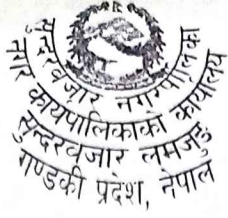 सुन्दरबजार नगरपालिका
नगर कार्यपालिकाको कार्यालय
सुन्दरबजार लमजुङ
गण्डकी प्रदेश, नेपाल